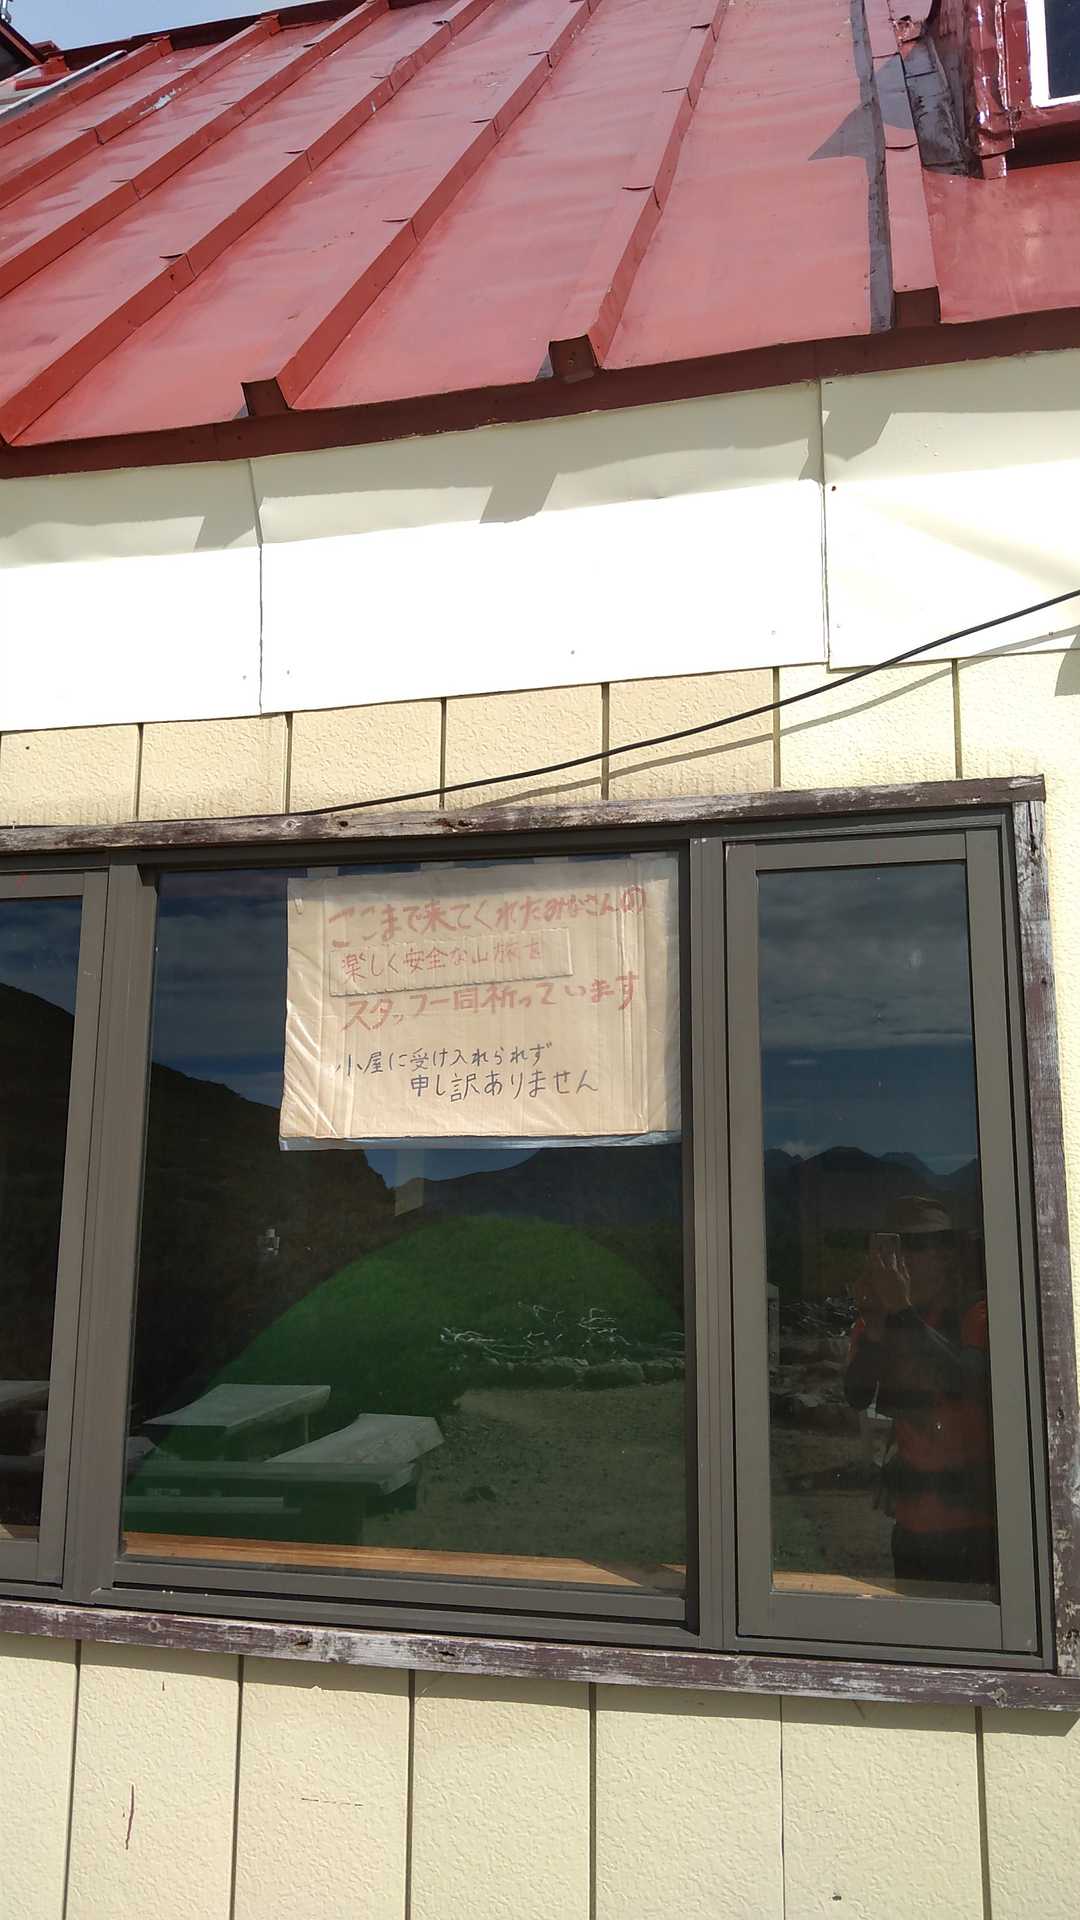 ここまで来てくれたみなさんの
楽しく安全な山旅を
スタッフ一同祈っています
小屋に受け入れられず
申し訳ありません